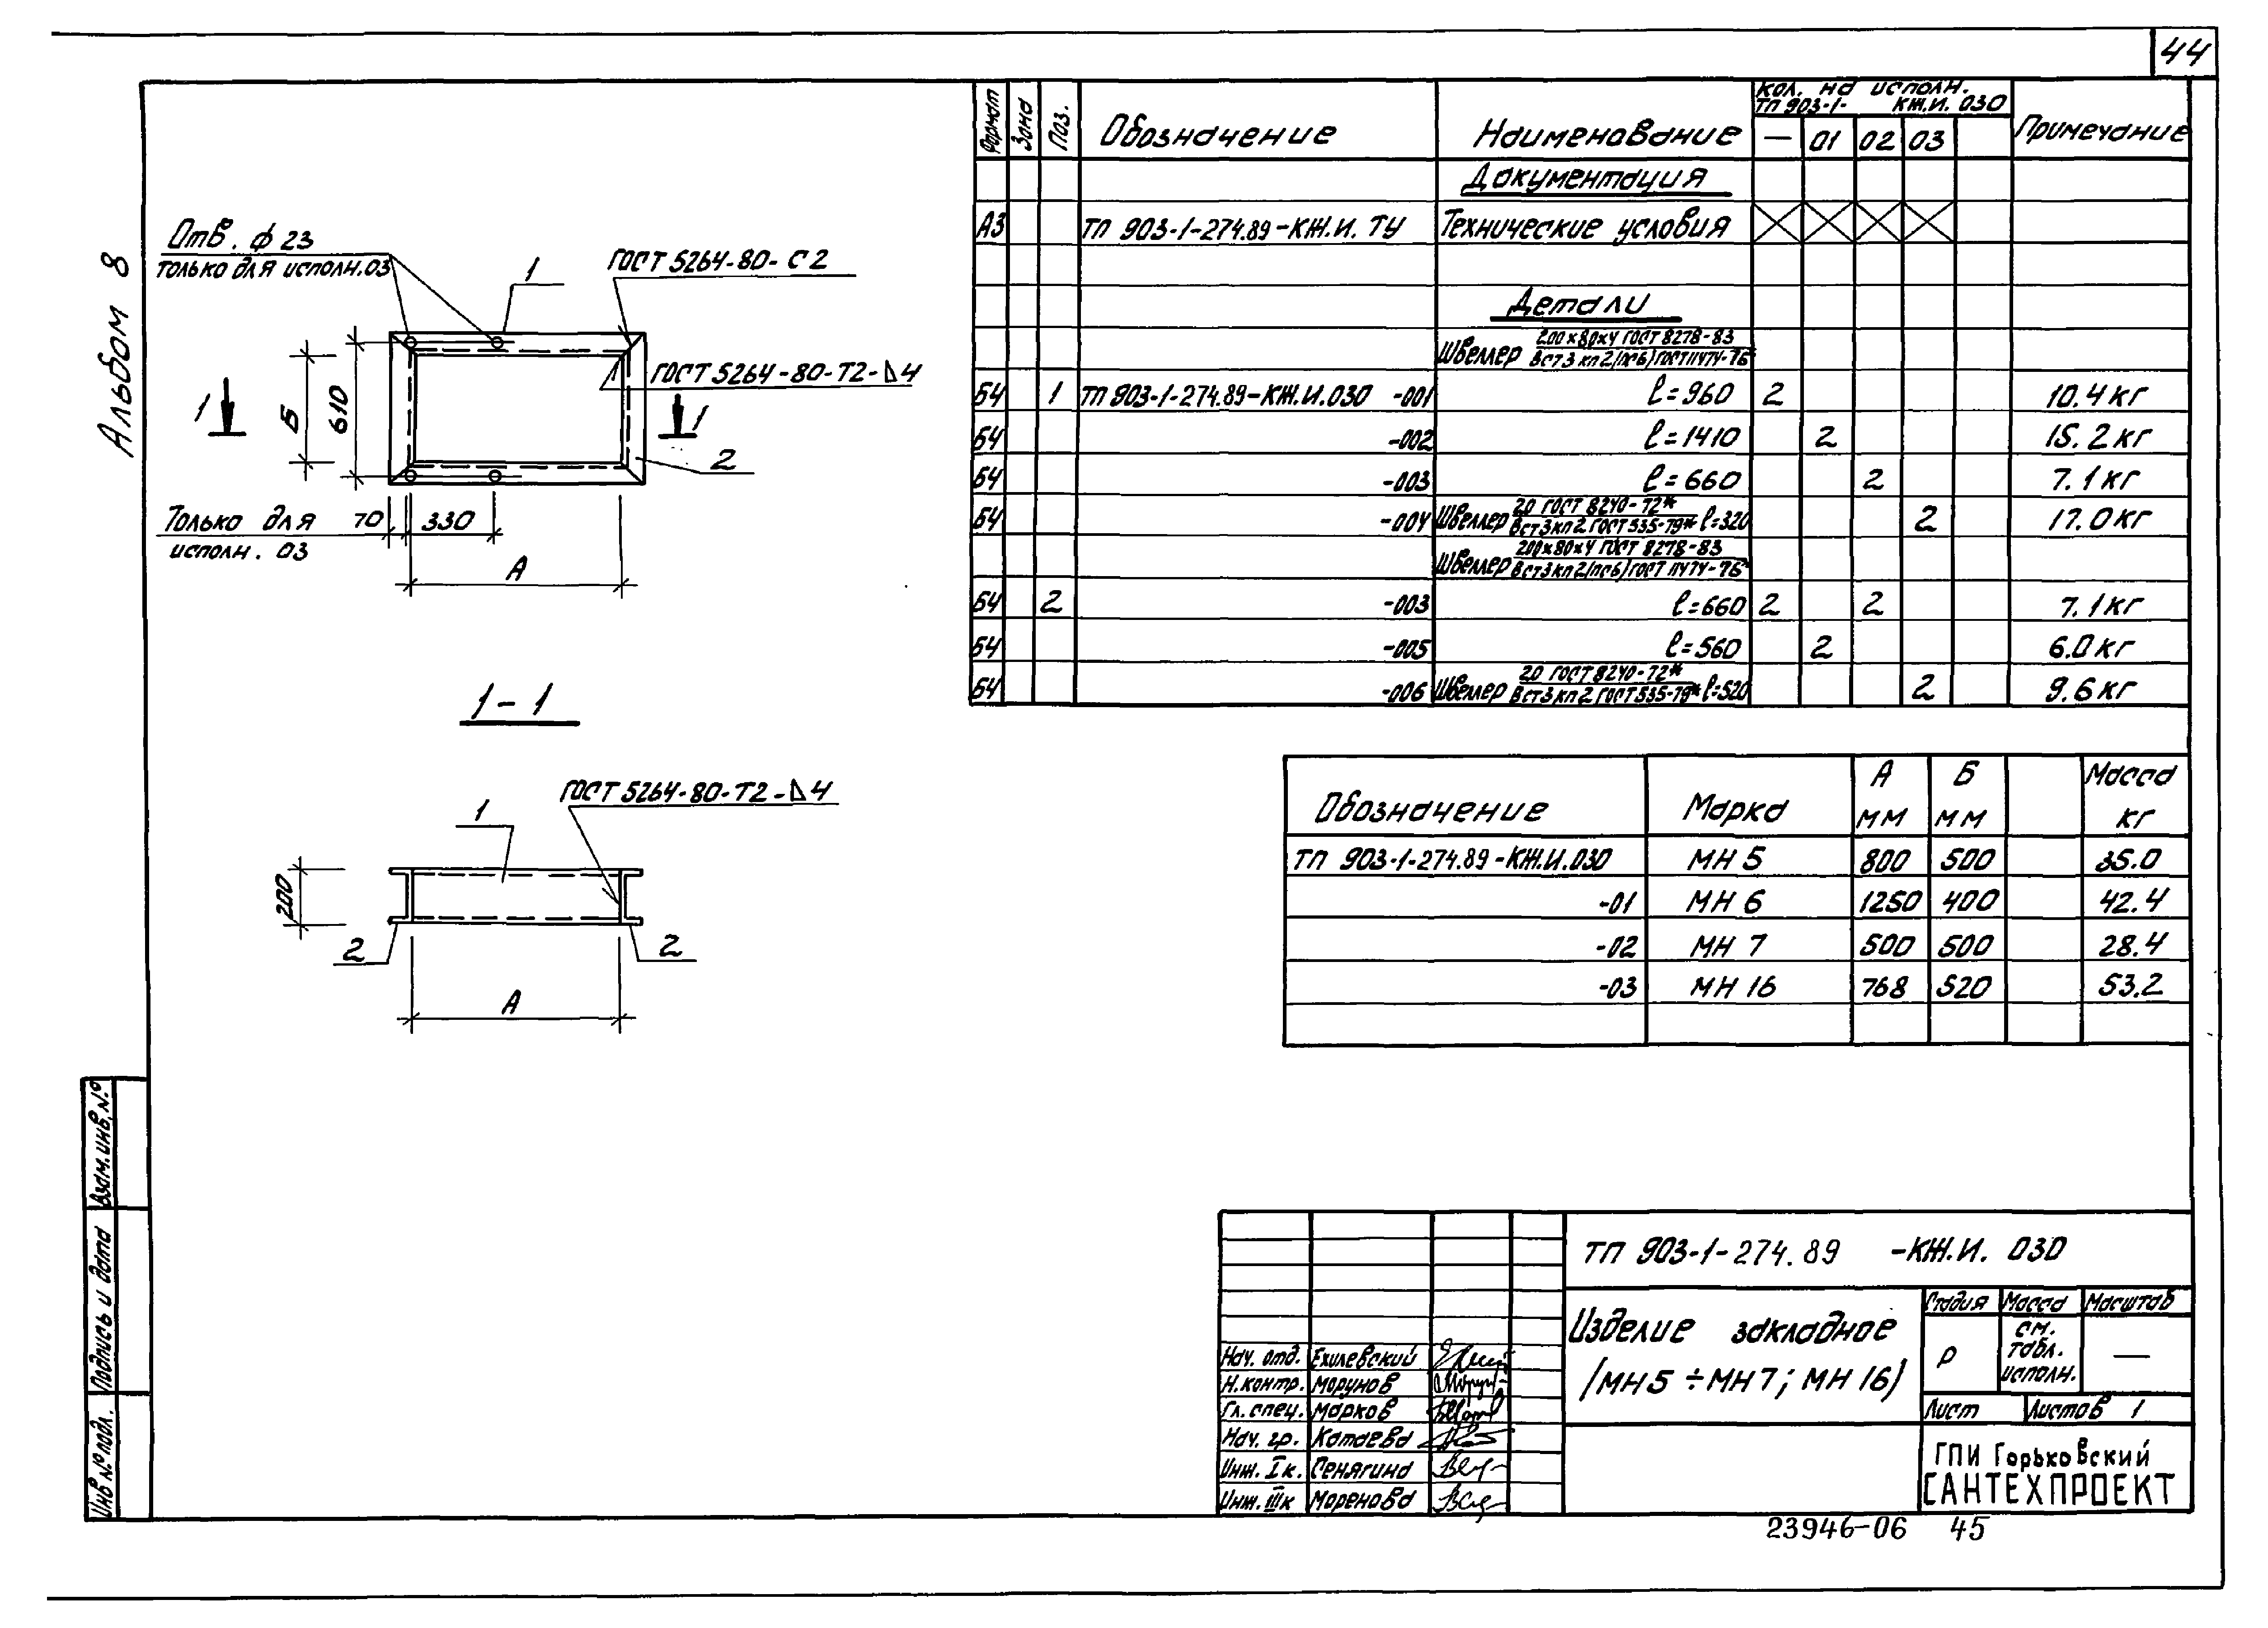 44
Альбом 8
Отв. ф 23
только для исполн. 03
1
ГОСТ 5264-80-С2
ГОСТ 5264-80-Т2-⊿4
1
1
Б
610
2
Только для
исполн. 03
70
330
А
1-1
1
ГОСТ 5264-80-Т2-⊿4
200
2
2
А
Формат Зона Поз. Обозначение Наименование Кол. на исполн. ТП 903-1- КЖ.И. 030 Примечание
— 01 02 03
Документация
А3 ТП 903-1-274.89-КЖ.И. ТУ Технические условия
Детали
Швеллер 200х80х4 ГОСТ 8278-83
Вст3 кп2(пс6) ГОСТ 11474-76
Б4 1 ТП 903-1-274.89-КЖ.И.030 -001 ℓ=960 2 10.4 кг
Б4 -002 ℓ=1410 2 15.2 кг
Б4 -003 ℓ=660 2 7.1 кг
Б4 -004 Швеллер 20 ГОСТ 8240-72*
Вст3кп2 ГОСТ 535-79* ℓ=320 2 17.0 кг
Швеллер 200х80х4 ГОСТ 8278-83
Вст3кп2(пс6) ГОСТ 11474-76
Б4 2 -003 ℓ=660 2 2 7.1 кг
Б4 -005 ℓ=560 2 6.0 кг
Б4 -006 Швеллер 20 ГОСТ 8240-72*
Вст3кп2 ГОСТ 535-79* ℓ=520 2 9.6 кг
Обозначение Марка А мм Б мм Масса кг
ТП 903-1-274.89-КЖ.И.030 МН 5 800 500 35.0
-01 МН 6 1250 400 42.4
-02 МН 7 500 500 28.4
-03 МН 16 768 520 53.2
Взам.инв.№
Подпись и дата
Инв № подл.
ТП 903-1-274.89 -КЖ.И. 030
Изделие закладное
(МН5÷МН7; МН16)
Стадия Масса Масштаб
Р см. табл. исполн. —
Лист Листов 1
Нач. отд. Ехилевский
Н.контр. Морунов
Гл. спец. Марков
Нач. гр. Катаева
Инж. Iк. Сенягина
Инж. IIIк Моренова
ГПИ Горьковский
САНТЕХПРОЕКТ
23946-06 45